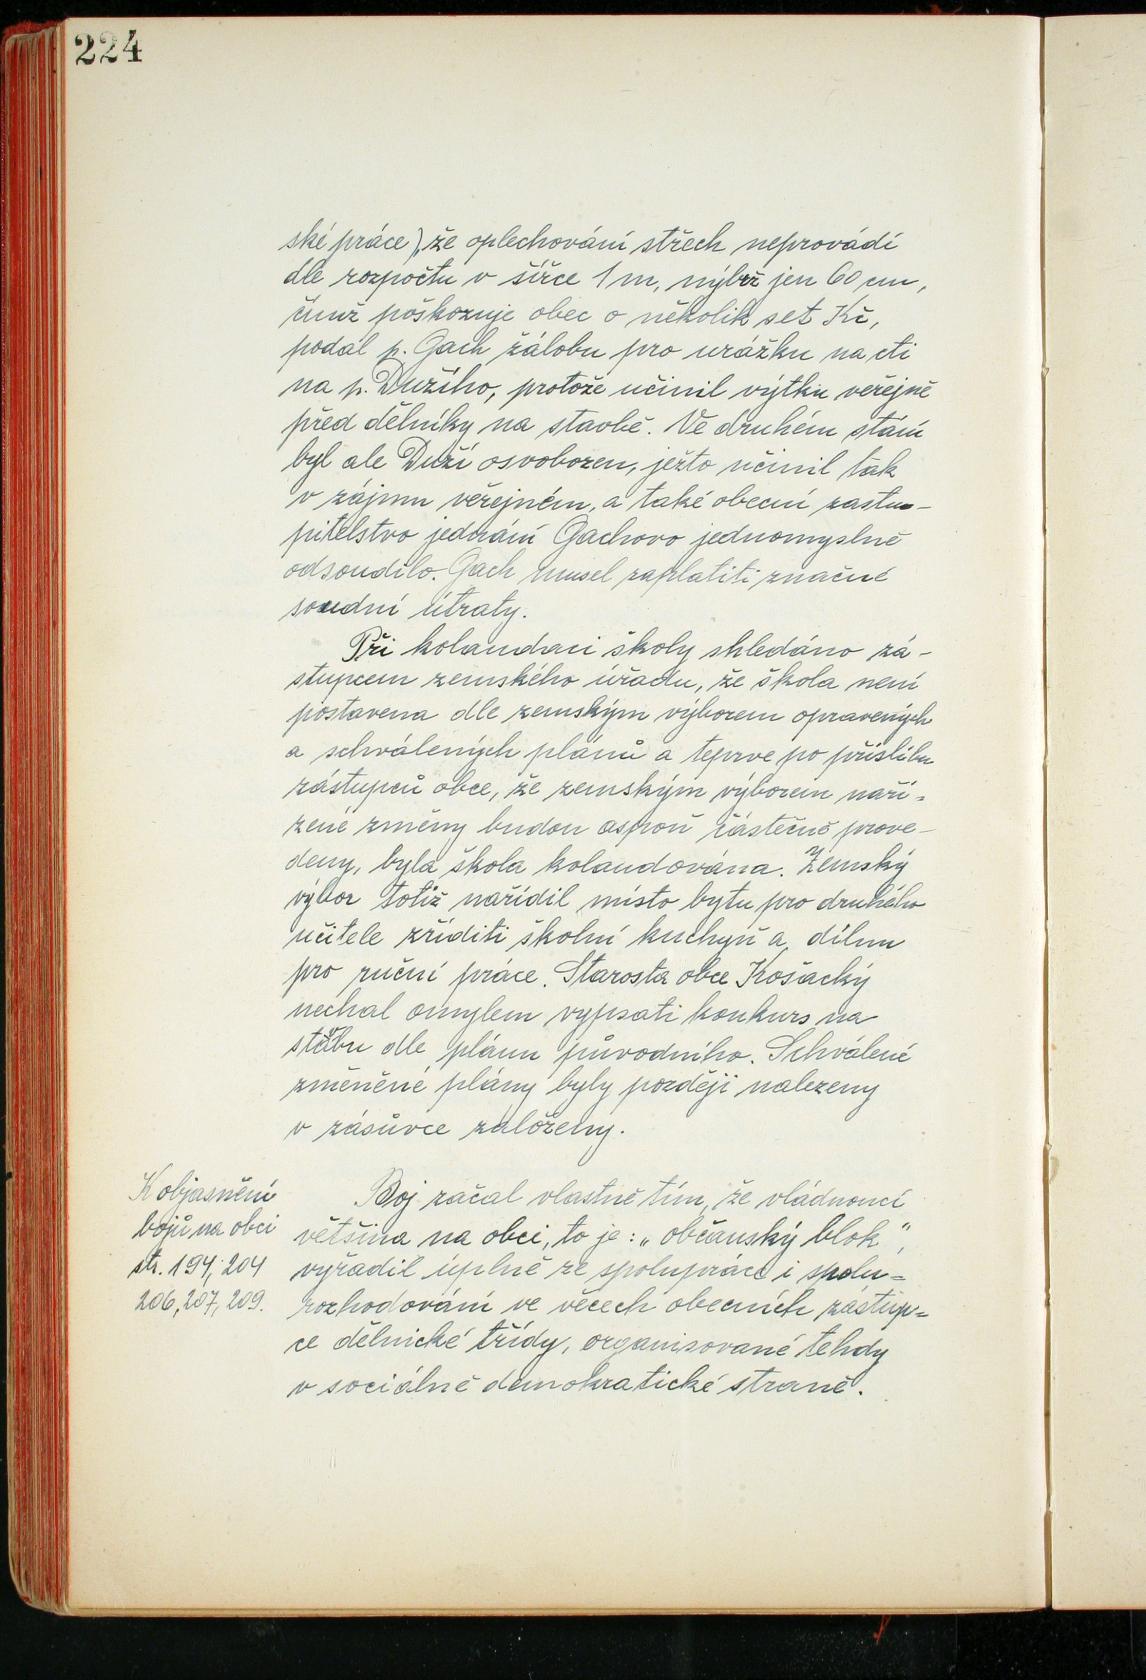 224
ské práce), že oplechování střech neprovádí
dle rozpočtu v šířce 1 m, nýbrž jen 60 cm,
čímž poškozuje obec o několik set Kč,
podal p. Gach žálobu pro urážku na cti
na p. Dužího, protože učinil výtku veřejně
před dělníky na stavbě. Ve druhém stání
byl ale Duží osvobozen, ježto učinil tak
v zájmu veřejném, a také obecní zastu-
pitelstvo jednání Gachovo jednomyslně
odsoudilo. Gach musel zaplatiti značné
soudní útraty.
Při kolaudaci školy shledáno zá-
stupcem zemského úřadu, že škola není
postavena dle zemským výborem opravených
a schválených plánů a teprve po příslibu
zástupců obce, že zemským výborem naří-
zené změny budou aspoň částečně prove-
deny, byla škola kolaudována. Zemský
výbor totiž nařídil místo bytu pro druhého
učitele zříditi školní kuchyň a dílnu
pro ruční práce. Starosta obce Košacký
nechal omylem vypsati konkurs na
stavbu dle plánu původního. Schválené
změněné plány byly později nalezeny
v zásuvce založeny.
K objasnění
bojů na obci
str. 194, 204
206, 207, 209.
Boj začal vlastně tím, že vládnoucí
většina na obci, to je: „občanský blok",
vyřadil úplně ze spolupráce i spolu-
rozhodování ve věcech obecních zástup-
ce dělnické třídy, organisované tehdy
v sociálně demokratické straně.